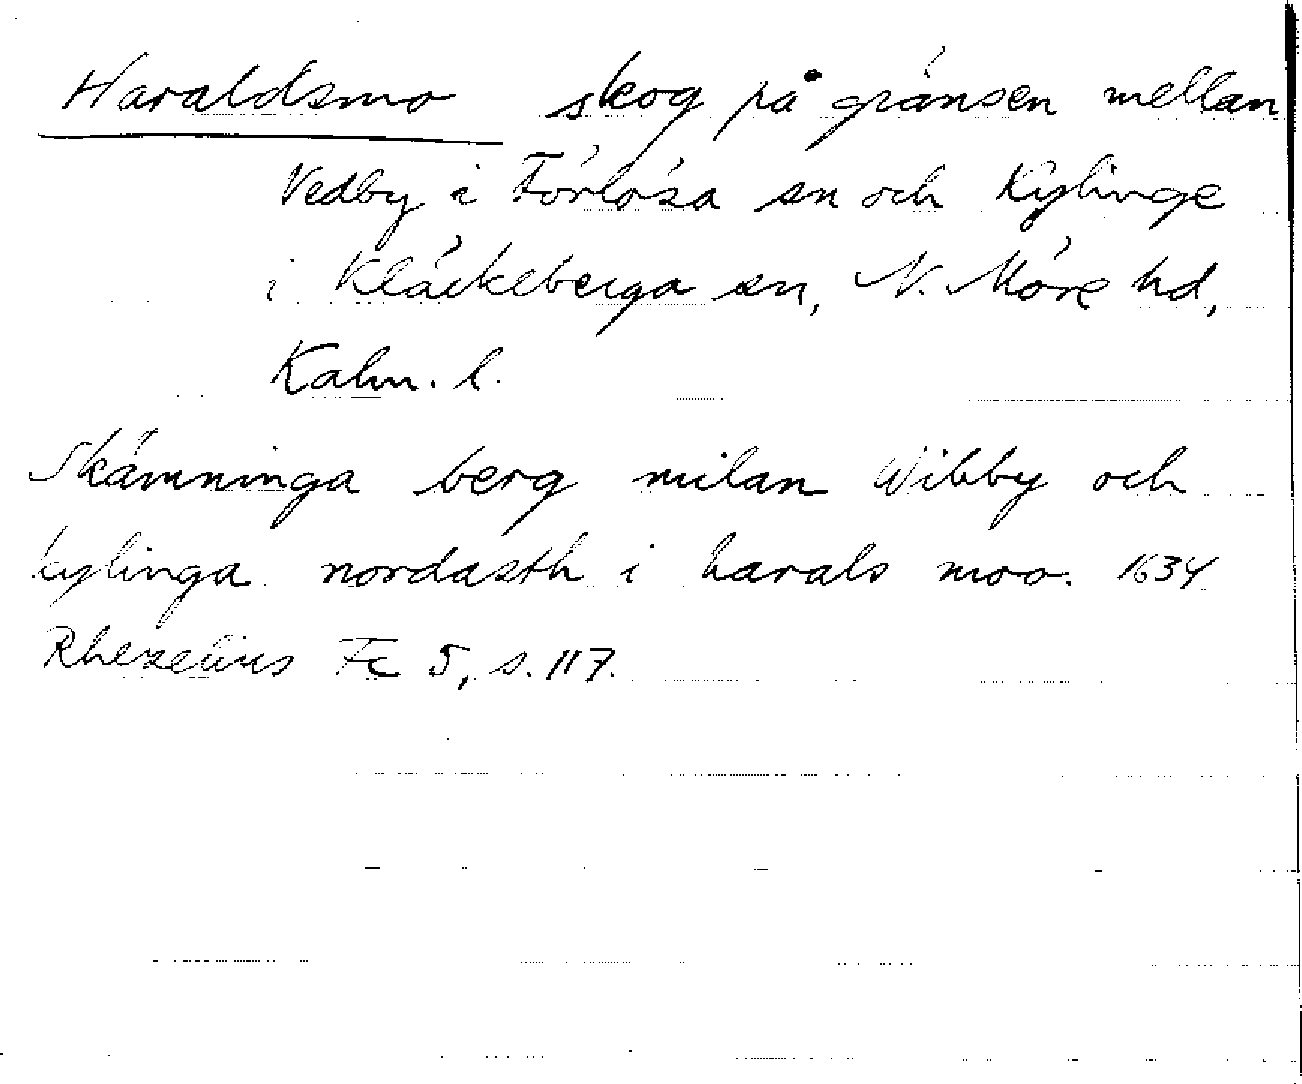 Haraldsmo skog på gränsen mellan
Vedby i Förlösa sn och Kylinge
i Kläckeberga sn, N. Möre hd,
Kalm. l.
Skämninga berg milan Wibby och
kylinga nordasth i harals moo. 1634
Rhezelius Fc 5, s. 117.